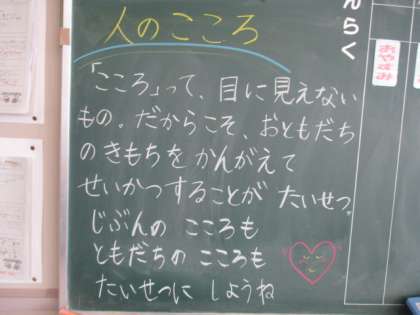 人のこころ
「こころ」って、目に見えない
もの。だからこそ、おともだち
のきもちを かんがえて
せいかつすることが たいせつ。
じぶんの こころも
ともだちの こころも
たいせつに しようね
んらく
おやすみ